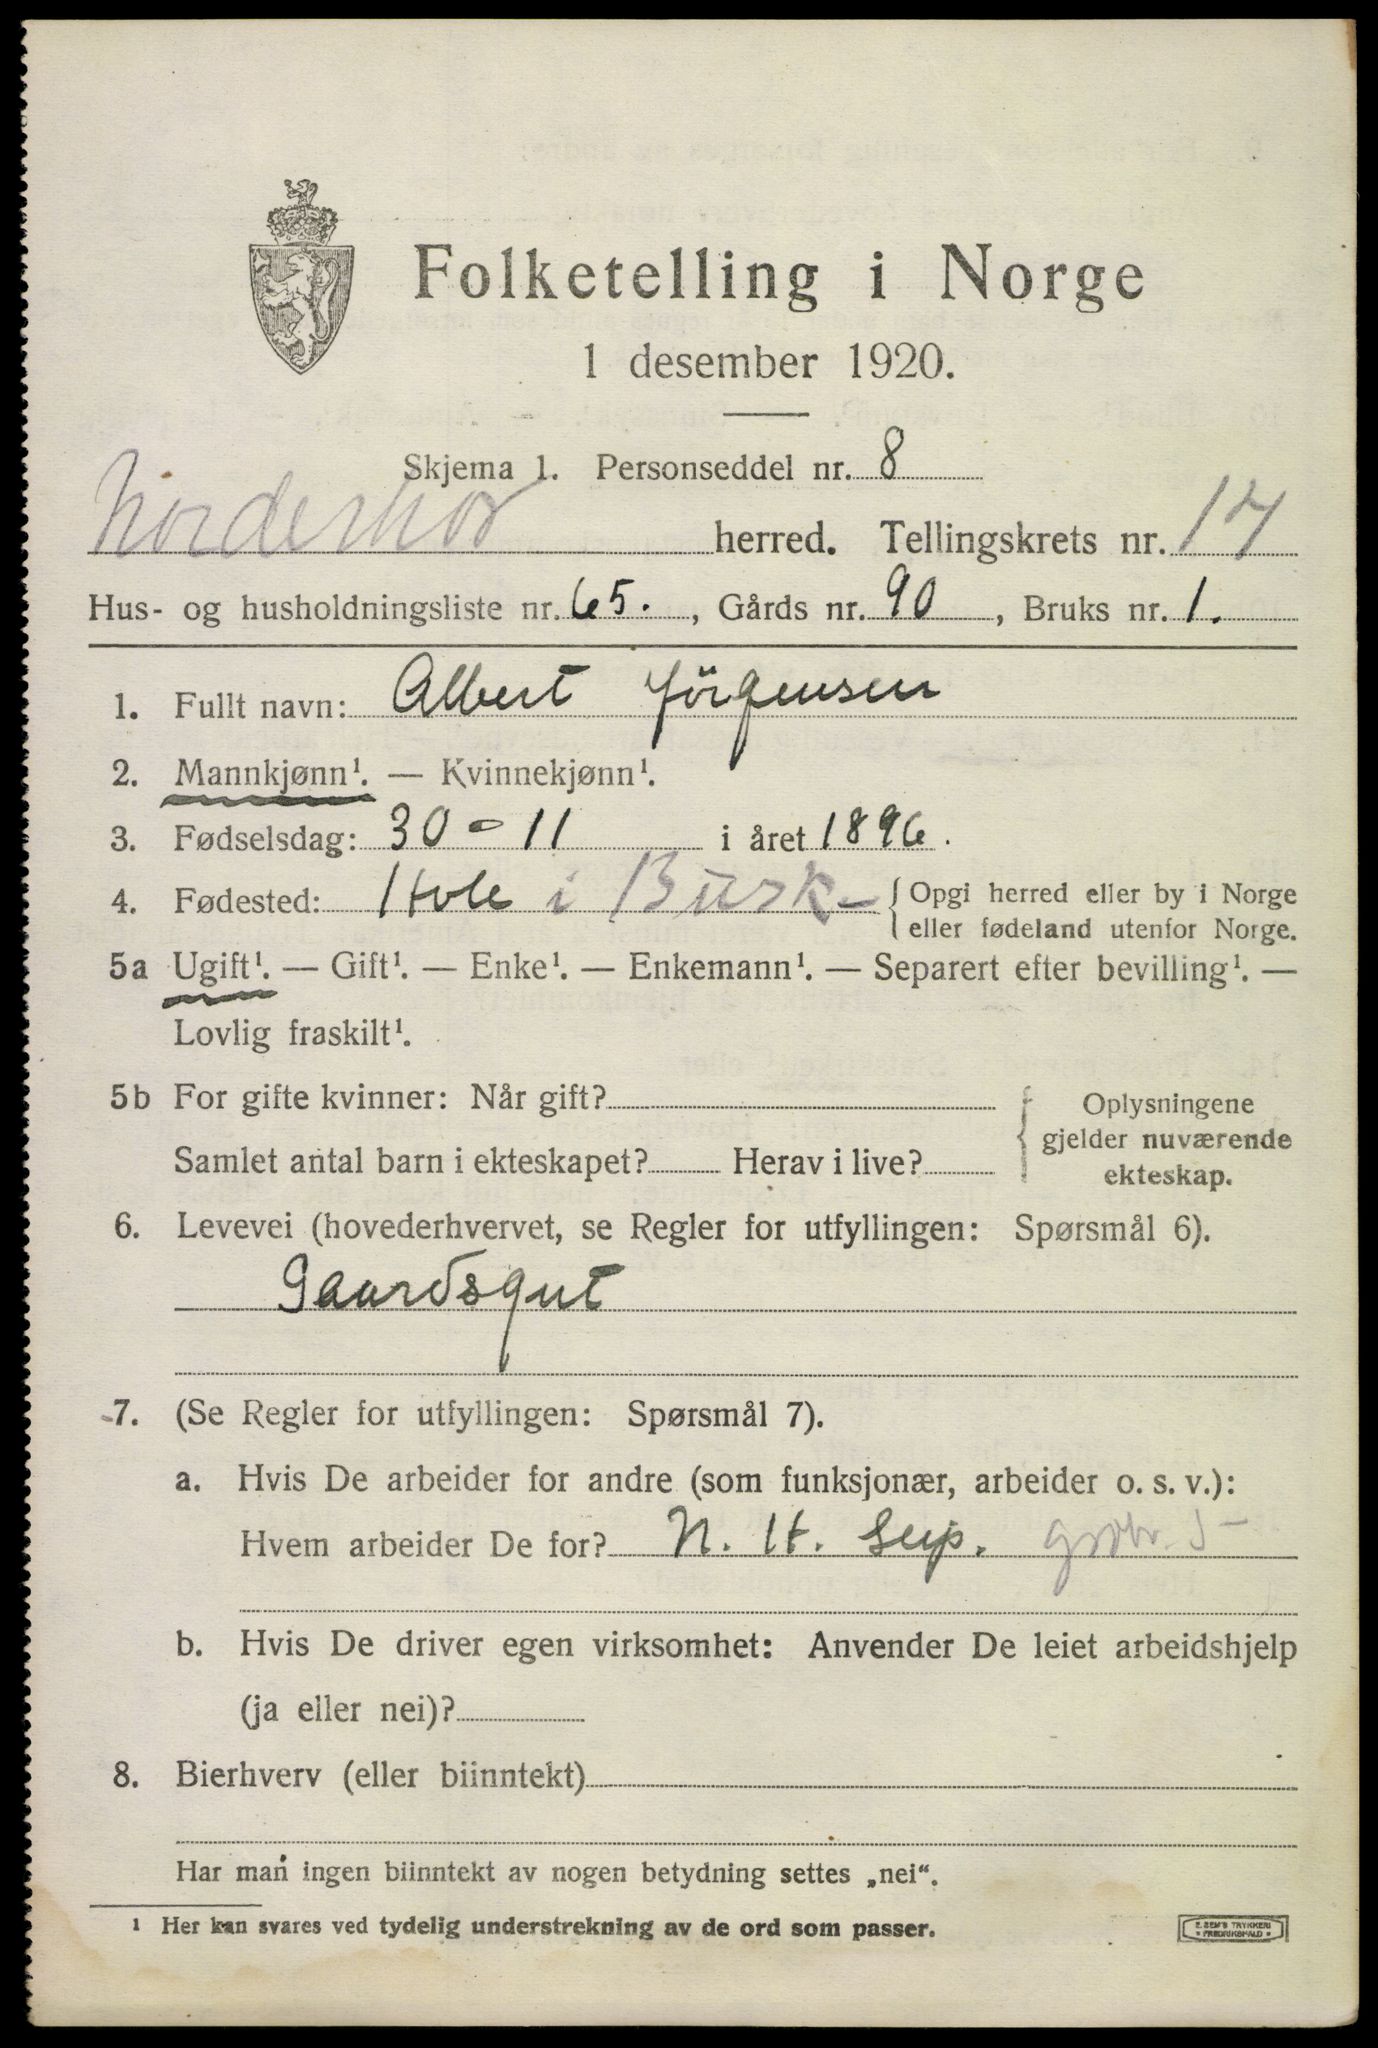 Folketelling i Norge
1 desember 1920.
Skjema 1. Personseddel nr. 8
Norderhov herred. Tellingskrets nr. 17
Hus- og husholdningsliste nr. 65. , Gårds nr. 90 , Bruks nr. 1.
1. Fullt navn: Albert Jörgensen
2. Mannkjønn¹. — Kvinnekjønn¹.
3. Fødselsdag: 30 - 11 i året 1896.
4. Fødested: Hole i Busk- { Opgi herred eller by i Norge
eller fødeland utenfor Norge.
5a Ugift¹. — Gift¹. — Enke¹. — Enkemann¹. — Separert efter bevilling¹. —
Lovlig fraskilt¹.
5b For gifte kvinner: Når gift? { Oplysningene
gjelder nuværende
Samlet antal barn i ekteskapet? Herav i live?
ekteskap.
6. Levevei (hovederhvervet, se Regler for utfyllingen: Spørsmål 6).
Gaardsgut
7. (Se Regler for utfyllingen: Spørsmål 7).
a. Hvis De arbeider for andre (som funksjonær, arbeider o. s. v.):
Hvem arbeider De for? N. H. Seip.
b. Hvis De driver egen virksomhet: Anvender De leiet arbeidshjelp
(ja eller nei)?
8. Bierhverv (eller biinntekt)
Har man ingen biinntekt av nogen betydning settes „nei“.
1 Her kan svares ved tydelig understrekning av de ord som passer.
E. SEM'S TRYKKERI
FREDRIKSHALD